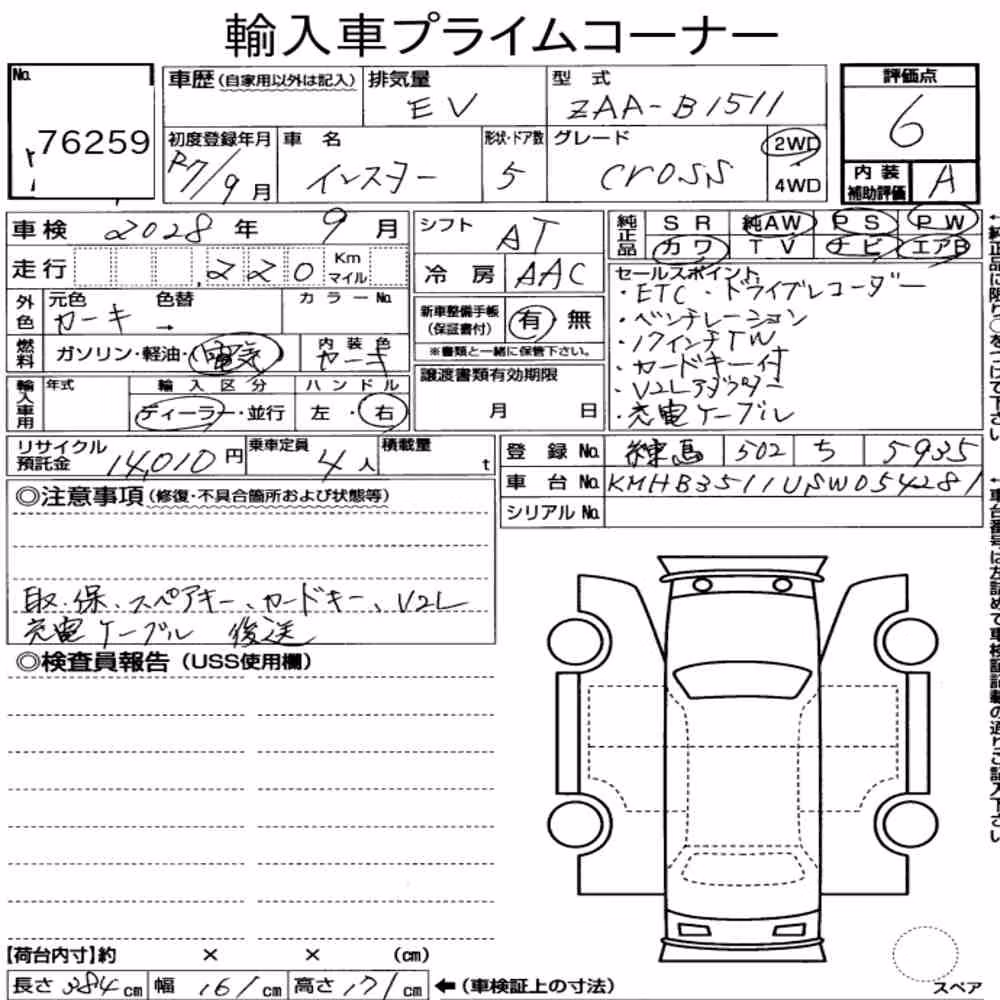 輸入車プライムコーナー
No. 76259
車歴 (自家用以外は記入)
排気量 EV
型式 ZAA-B1511
初度登録年月 R7/9月
車名 インスター
形状・ドア数 5
グレード cross
2WD
4WD
評価点 6
内装補助評価 A
車検 2028年 9月
走行 ,220 Km マイル
外色 元色 カーキ 色替 → カラーNo.
燃料 ガソリン・軽油・電気
内装色 カーキ
輸入車用 年式
輸入区分 ディーラー・並行
ハンドル 左・右
シフト AT
冷房 AAC
新車整備手帳(保証書付) 有 無
※書類と一緒に保管下さい。
譲渡書類有効期限
月 日
純正品 SR 純AW PS PW
カワ TV ナビ エアB
セールスポイント
・ETC・ドライブレコーダー
・ベンチレーション
・17インチTW
・カードキー付
・V2Lアダプター
・充電ケーブル
リサイクル預託金 14,010円
乗車定員 4人
積載量 t
登録No. 練馬 502 ち 5935
車台No. KMHB3511USW054281
シリアルNo.
◎注意事項(修復・不具合箇所および状態等)
取・保、スペアキー、カードキー、V2L
充電ケーブル 後送
◎検査員報告(USS使用欄)
【荷台内寸】約 × × (cm)
長さ 384cm 幅 161cm 高さ 171cm ←(車検証上の寸法)
スペア
↑純正品に限り○をつけて下さい
↑車台番号は左詰めで車検証記載の通りご記入下さい